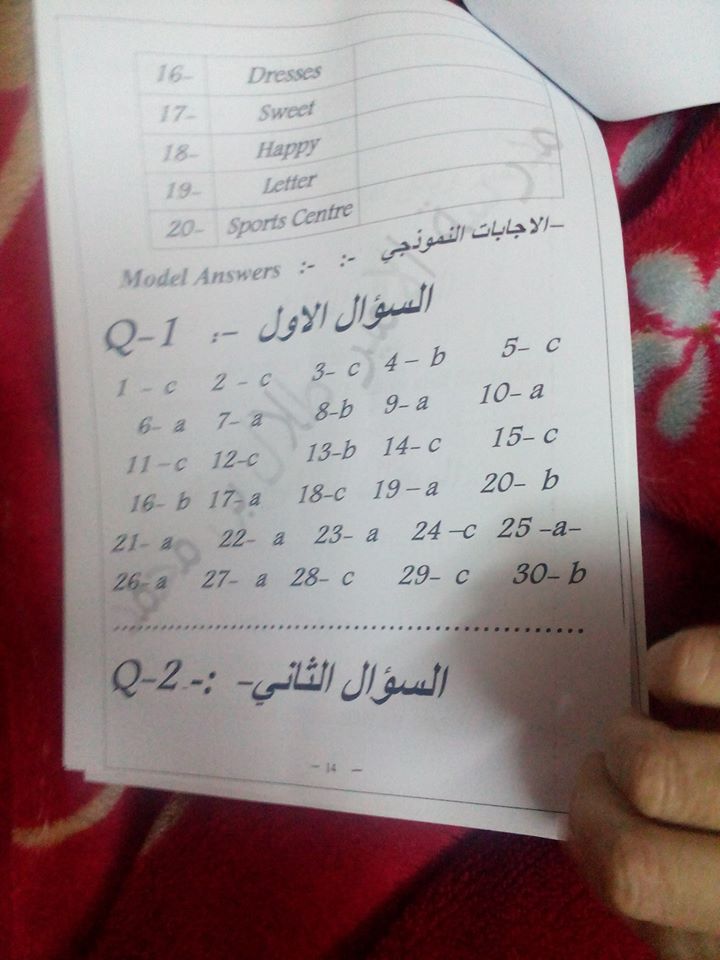 16- Dresses
17- Sweet
18- Happy
19- Letter
20- Sports Centre
-الاجابات النموذجي :- :- Model Answers
Q-1 :- السؤال الاول
1 - c 2 - c 3- c 4 - b 5- c
6- a 7- a 8-b 9- a 10- a
11 -c 12-c 13-b 14- c 15- c
16- b 17- a 18-c 19 -a 20- b
21- a 22- a 23- a 24 -c 25 -a-
26- a 27- a 28- c 29- c 30- b
Q-2 -:- السؤال الثاني-
- 14 -